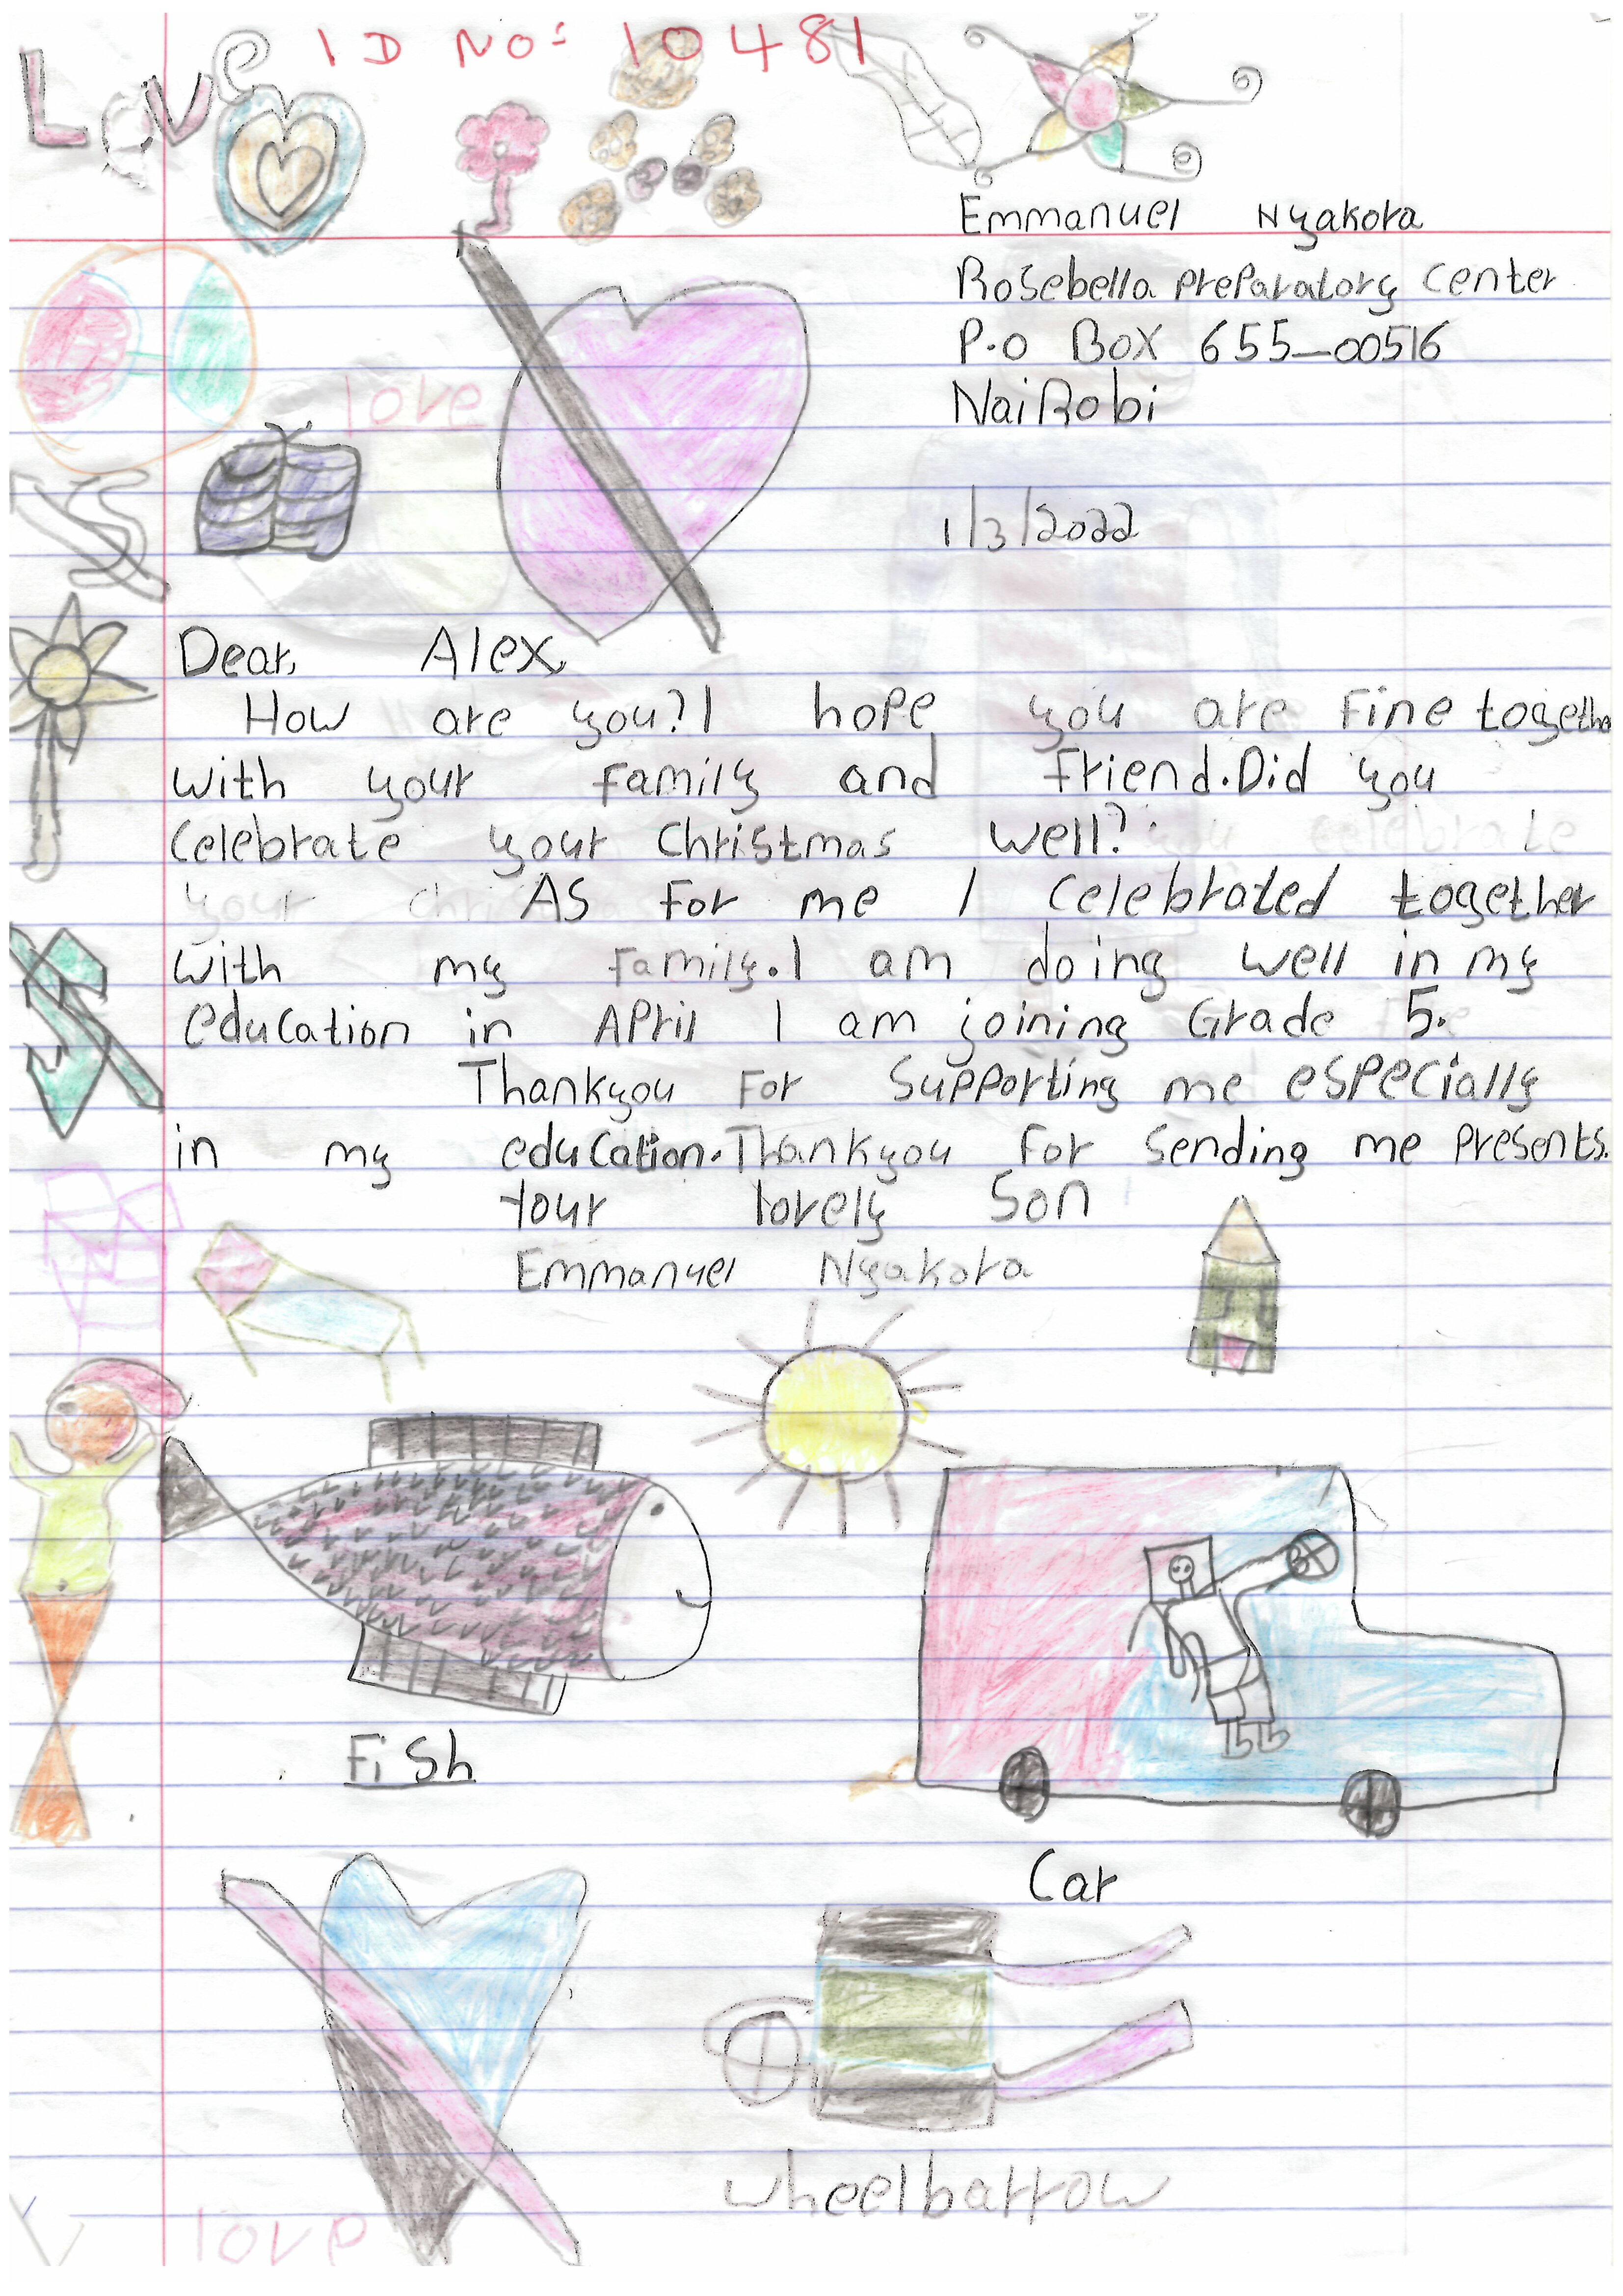 Love
ID NO: 10481
Emmanuel Nyakora
Rosebella preparatory center
P.o Box 655-00516
NaiRobi
love
1/3/2022
Dear, Alex,
How are you? I hope you are fine together
with your family and friend. Did you
celebrate your christmas well?
As for me I celebrated together
with my family. I am doing well in my
education in April I am joining Grade 5.
Thankyou for supporting me especially
in my education. Thankyou for sending me presents.
Your lovely son
Emmanuel Nyakora
Fish
Car
wheelbarrow
love